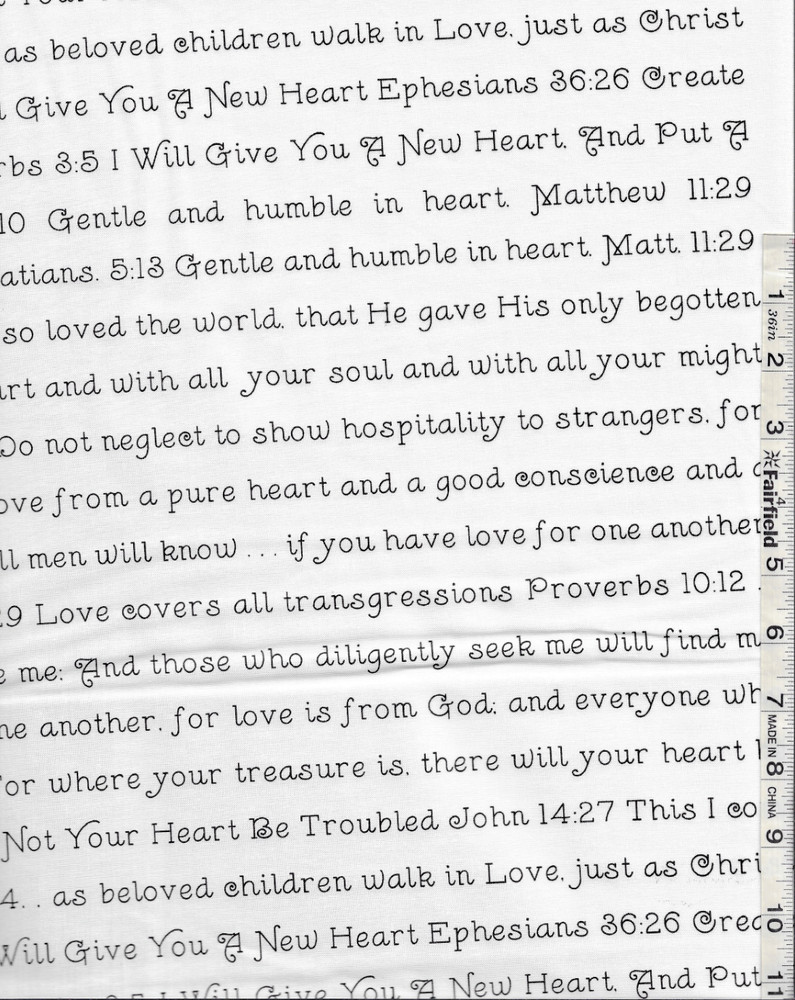 as beloved children walk in Love, just as Christ
Give You A New Heart Ephesians 36:26 Create
rbs 3:5 I Will Give You A New Heart, And Put A
10 Gentle and humble in heart. Matthew 11:29
atians. 5:13 Gentle and humble in heart. Matt. 11:29
so loved the world, that He gave His only begotten
rt and with all your soul and with all your might
Do not neglect to show hospitality to strangers, for
ove from a pure heart and a good conscience and
ll men will know ... if you have love for one another
:9 Love covers all transgressions Proverbs 10:12
e me; And those who diligently seek me will find m
ne another, for love is from God; and everyone wh
for where your treasure is, there will your heart
Not Your Heart Be Troubled John 14:27 This I co
4. . as beloved children walk in Love, just as Chri
Will Give You A New Heart Ephesians 36:26 Crea
3:5 I Will Give You A New Heart, And Put
1 36in 2 3 4 Fairfield 5 6 7 MADE IN 8 CHINA 9 10 11